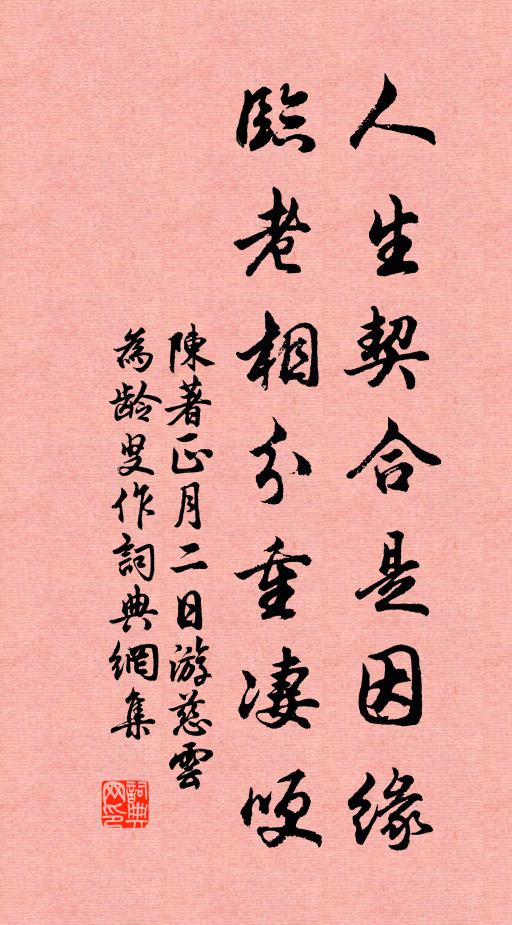 人生契合是因緣
臨老相分重凄哽
陳著正月二日游慈雲
為龄叟作詞典網集
詞典
网印